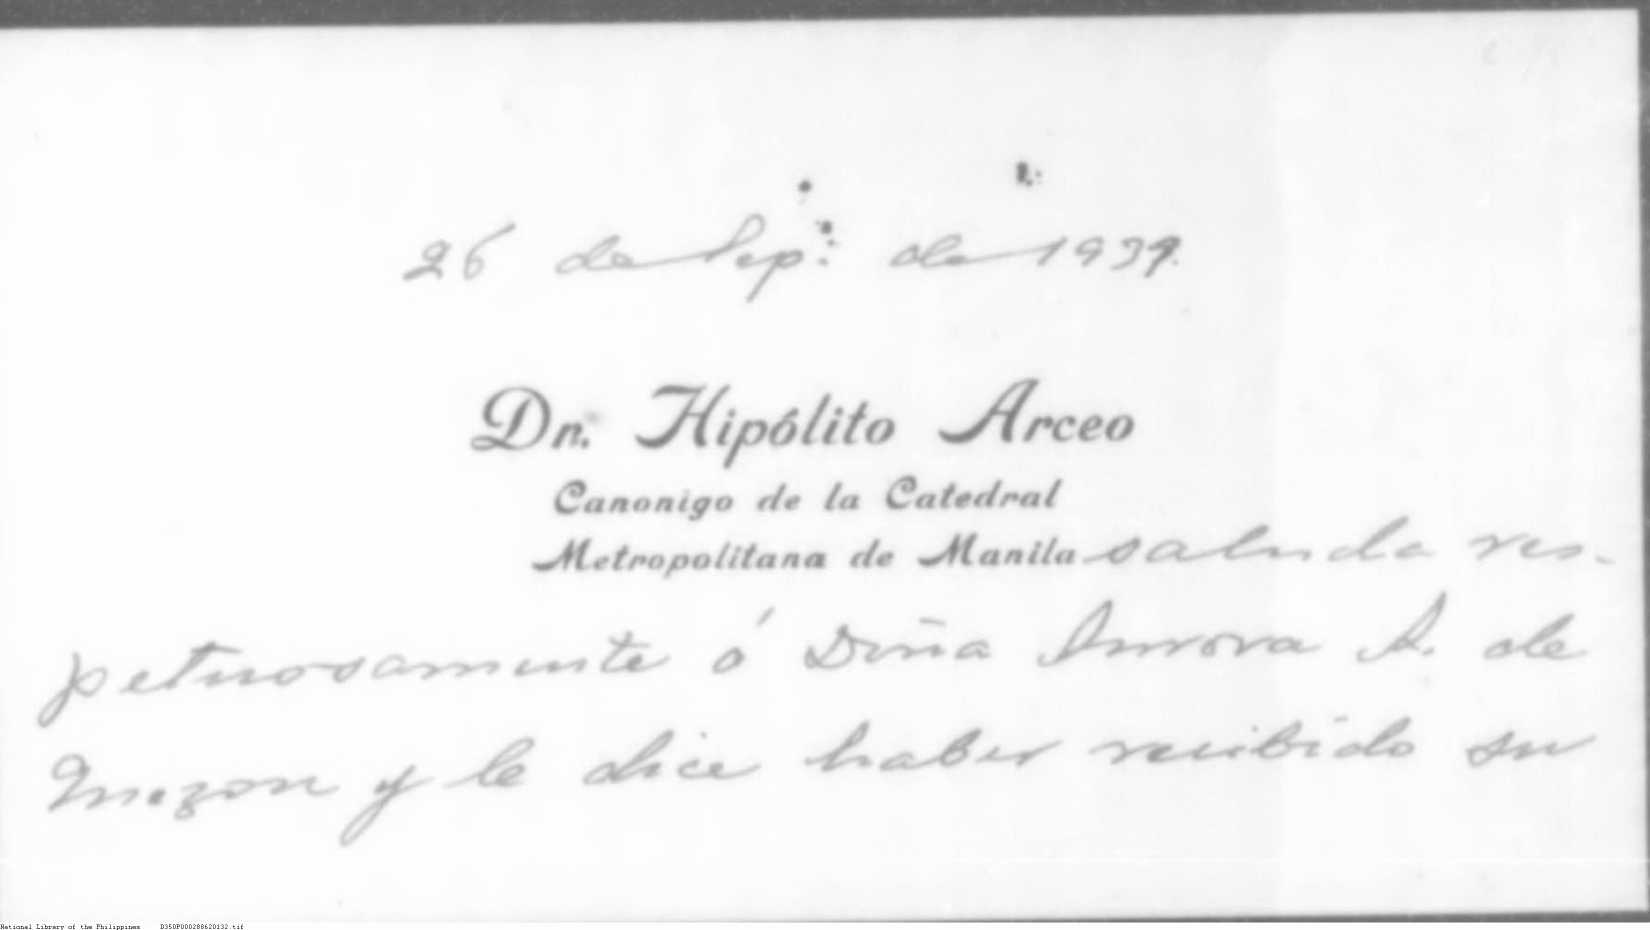 26 de Sep: de 1939.
Dn. Hipólito Arceo
Canonigo de la Catedral
Metropolitana de Manila saluda res-
petuosamente á Dña Aurora A. de
Quezon y le dice haber recibido su
National Library of the Philippines D350P000288620132.tif